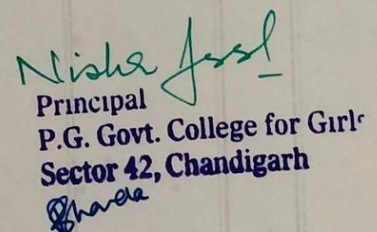 Nisha
Principal
P.G. Govt. College for Girls
Sector 42, Chandigarh